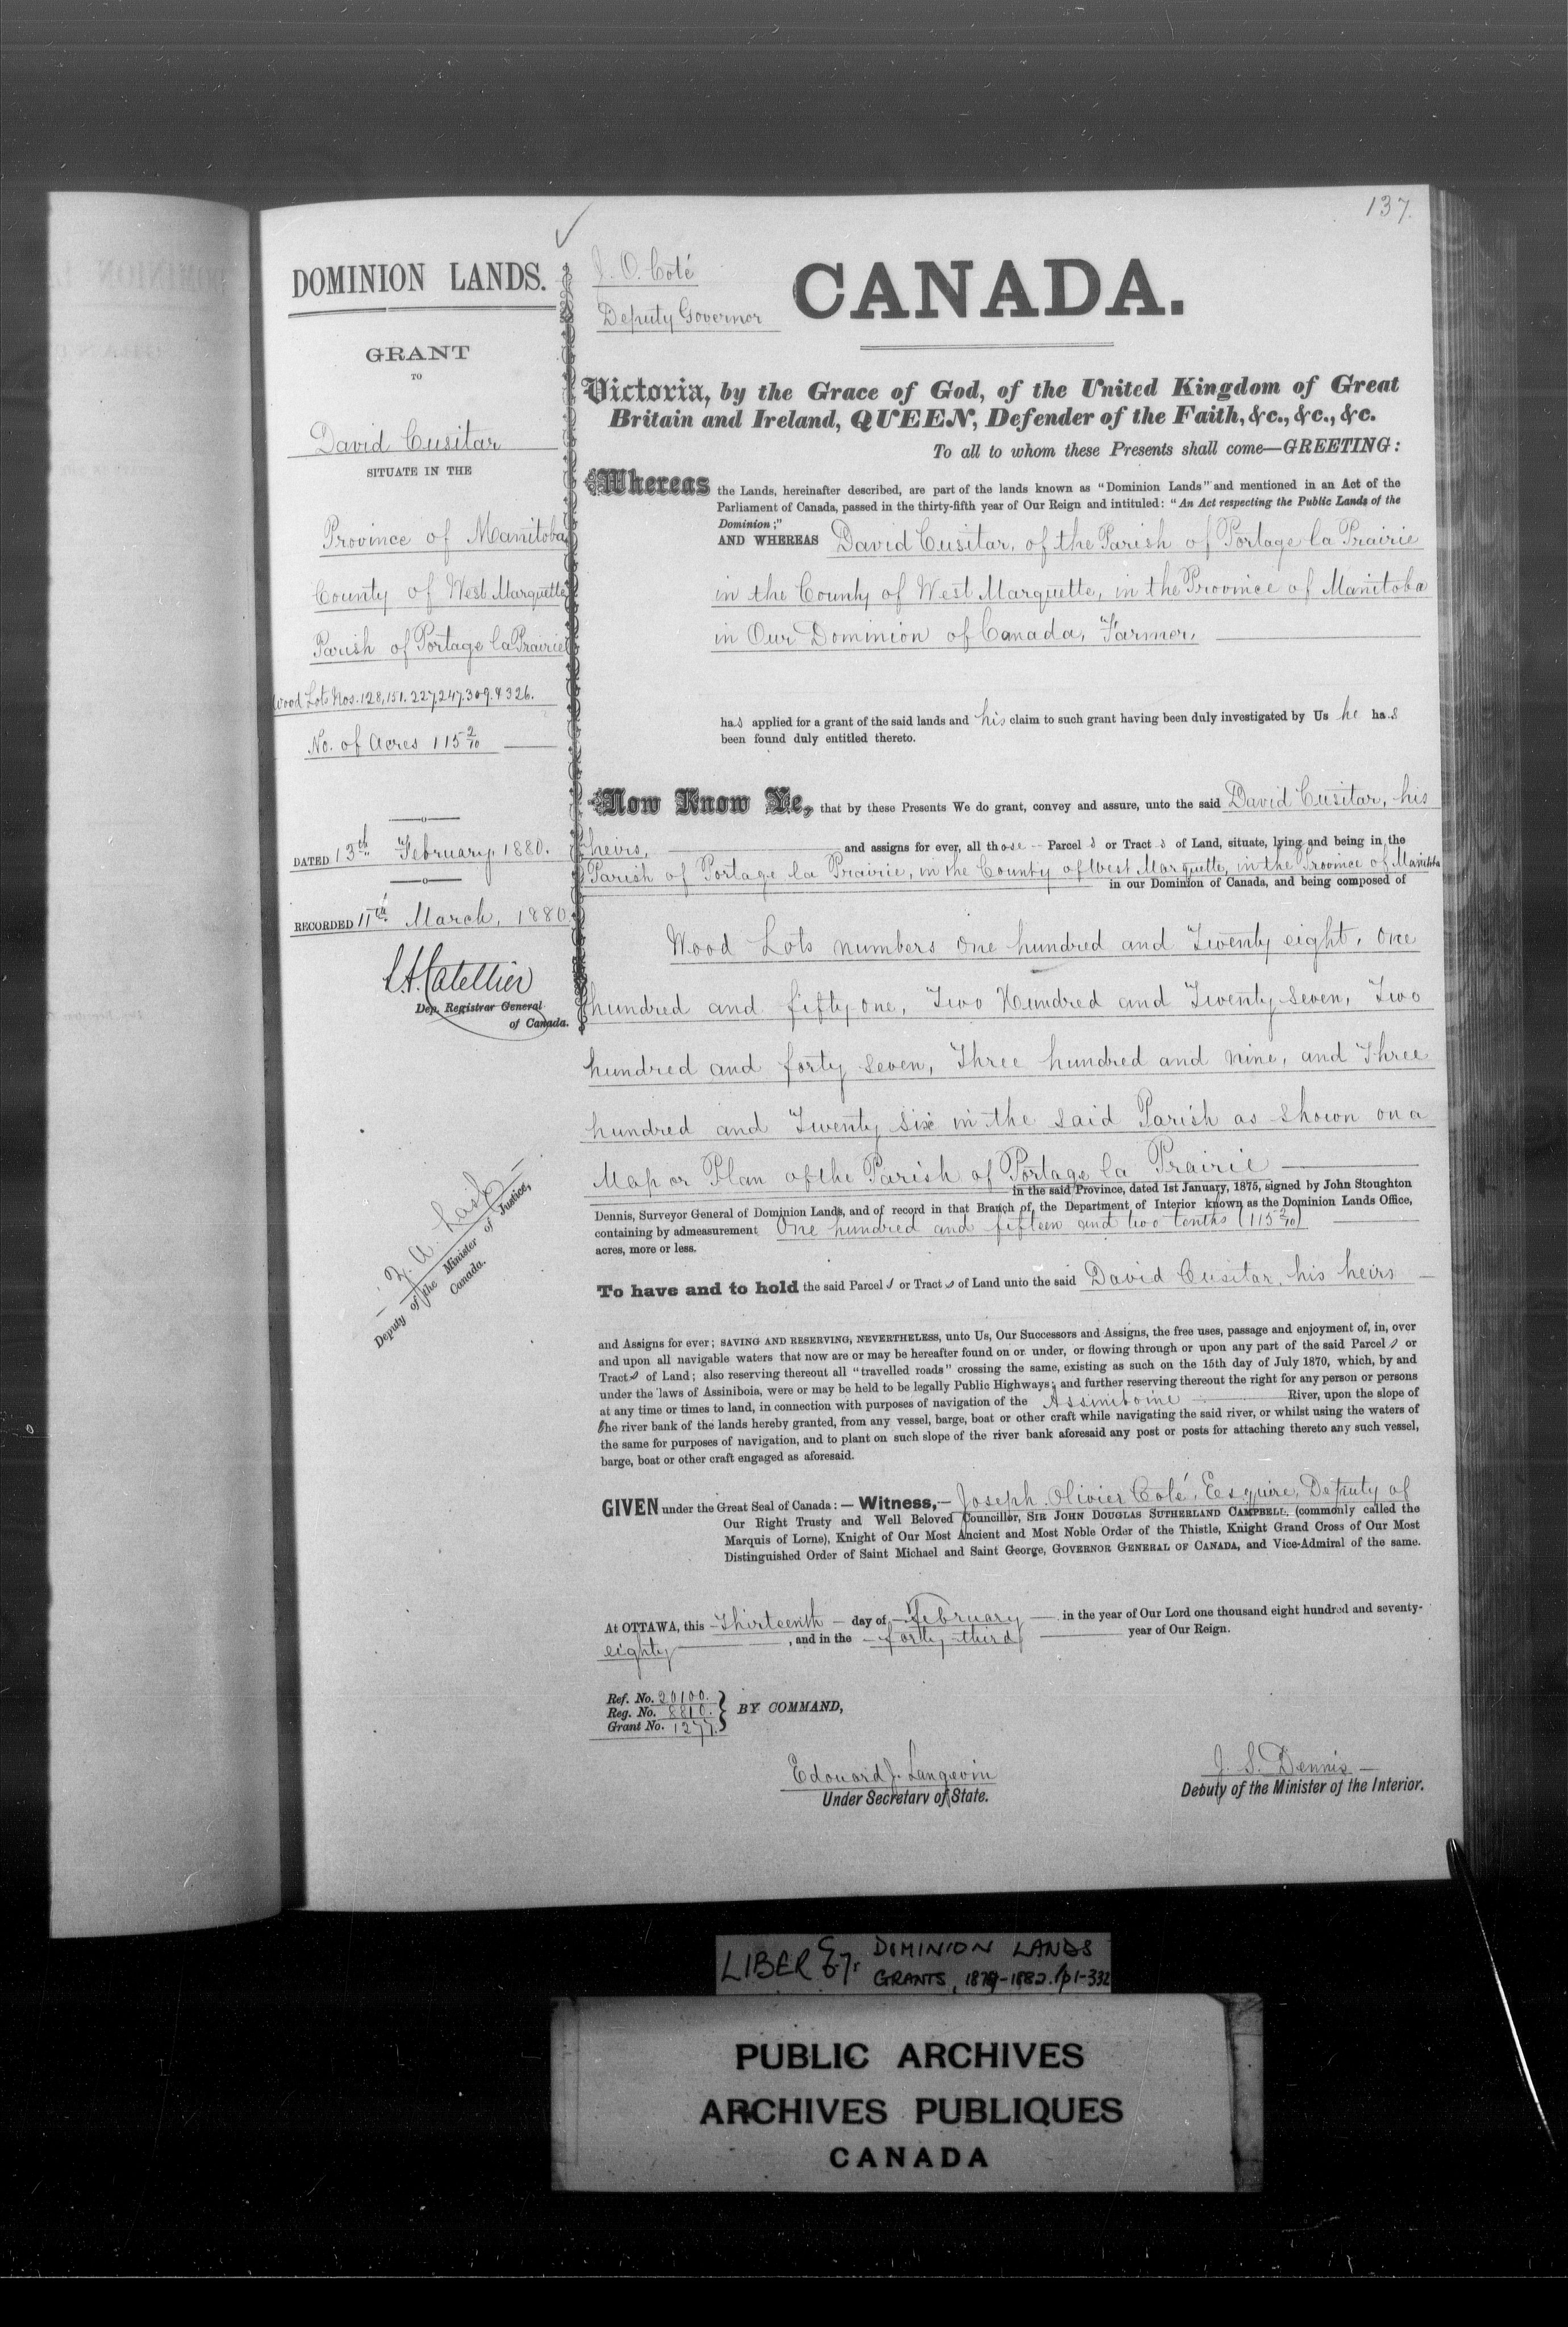 137.
DOMINION LANDS.
GRANT
TO
David Cusitar
SITUATE IN THE
Province of Manitoba
County of West Marquette
Parish of Portage la Prairie
Wood Lots Nos. 128, 151. 227, 247. 309. & 326.
No. of Acres 115 2/10
DATED 13th February, 1880.
RECORDED 11th March, 1880.
L.A. Catellier
Dep. Registrar General
of Canada.
Z. A. Lash
Deputy of the Minister of Justice,
Canada.
J. O. Coté
Deputy Governor
CANADA.
Victoria, by the Grace of God, of the United Kingdom of Great
Britain and Ireland, QUEEN, Defender of the Faith, &c., &c., &c.
To all to whom these Presents shall come—GREETING:
Whereas the Lands, hereinafter described, are part of the lands known as "Dominion Lands" and mentioned in an Act of the
Parliament of Canada, passed in the thirty-fifth year of Our Reign and intituled: "An Act respecting the Public Lands of the
Dominion;"
AND WHEREAS David Cusitar, of the Parish of Portage la Prairie
in the County of West Marquette, in the Province of Manitoba
in Our Dominion of Canada, Farmer,
has applied for a grant of the said lands and his claim to such grant having been duly investigated by Us he has
been found duly entitled thereto.
Now Know Ye, that by these Presents We do grant, convey and assure, unto the said David Cusitar, his
heirs, and assigns for ever, all those Parcel s or Tract s of Land, situate, lying and being in the
Parish of Portage la Prairie, in the County of West Marquette, in the Province of Manitoba
in our Dominion of Canada, and being composed of
Wood Lots numbers One hundred and Twenty eight, One
hundred and fifty one, Two Hundred and Twenty seven, Two
hundred and forty seven, Three hundred and nine, and Three
hundred and Twenty six in the said Parish as shown on a
Map or Plan of the Parish of Portage la Prairie
in the said Province, dated 1st January, 1875, signed by John Stoughton
Dennis, Surveyor General of Dominion Lands, and of record in that Branch of the Department of Interior known as the Dominion Lands Office,
containing by admeasurement One hundred and fifteen and two tenths (115 2/10)
acres, more or less.
To have and to hold the said Parcel s or Tract s of Land unto the said David Cusitar, his heirs
and Assigns for ever; SAVING AND RESERVING, NEVERTHELESS, unto Us, Our Successors and Assigns, the free uses, passage and enjoyment of, in, over
and upon all navigable waters that now are or may be hereafter found on or under, or flowing through or upon any part of the said Parcel s or
Tract s of Land; also reserving thereout all "travelled roads" crossing the same, existing as such on the 15th day of July 1870, which, by and
under the laws of Assiniboia, were or may be held to be legally Public Highways; and further reserving thereout the right for any person or persons
at any time or times to land, in connection with purposes of navigation of the Assiniboine River, upon the slope of
the river bank of the lands hereby granted, from any vessel, barge, boat or other craft while navigating the said river, or whilst using the waters of
the same for purposes of navigation, and to plant on such slope of the river bank aforesaid any post or posts for attaching thereto any such vessel,
barge, boat or other craft engaged as aforesaid.
GIVEN under the Great Seal of Canada:—Witness,— Joseph Olivier Coté, Esquire, Deputy of
Our Right Trusty and Well Beloved Councillor, SIR JOHN DOUGLAS SUTHERLAND CAMPBELL, (commonly called the
Marquis of Lorne), Knight of Our Most Ancient and Most Noble Order of the Thistle, Knight Grand Cross of Our Most
Distinguished Order of Saint Michael and Saint George, GOVERNOR GENERAL OF CANADA, and Vice-Admiral of the same.
At OTTAWA, this Thirteenth day of February in the year of Our Lord one thousand eight hundred and seventy-
eighty, and in the forty-third year of Our Reign.
Ref. No. 20100.
Reg. No. 8810.
Grant No. 1277.
BY COMMAND,
Edouard J. Langevin
Under Secretary of State.
J. S. Dennis
Deputy of the Minister of the Interior.
LIBER
DOMINION LANDS
GRANTS, 1879-1882. pp1-332
PUBLIC ARCHIVES
ARCHIVES PUBLIQUES
CANADA